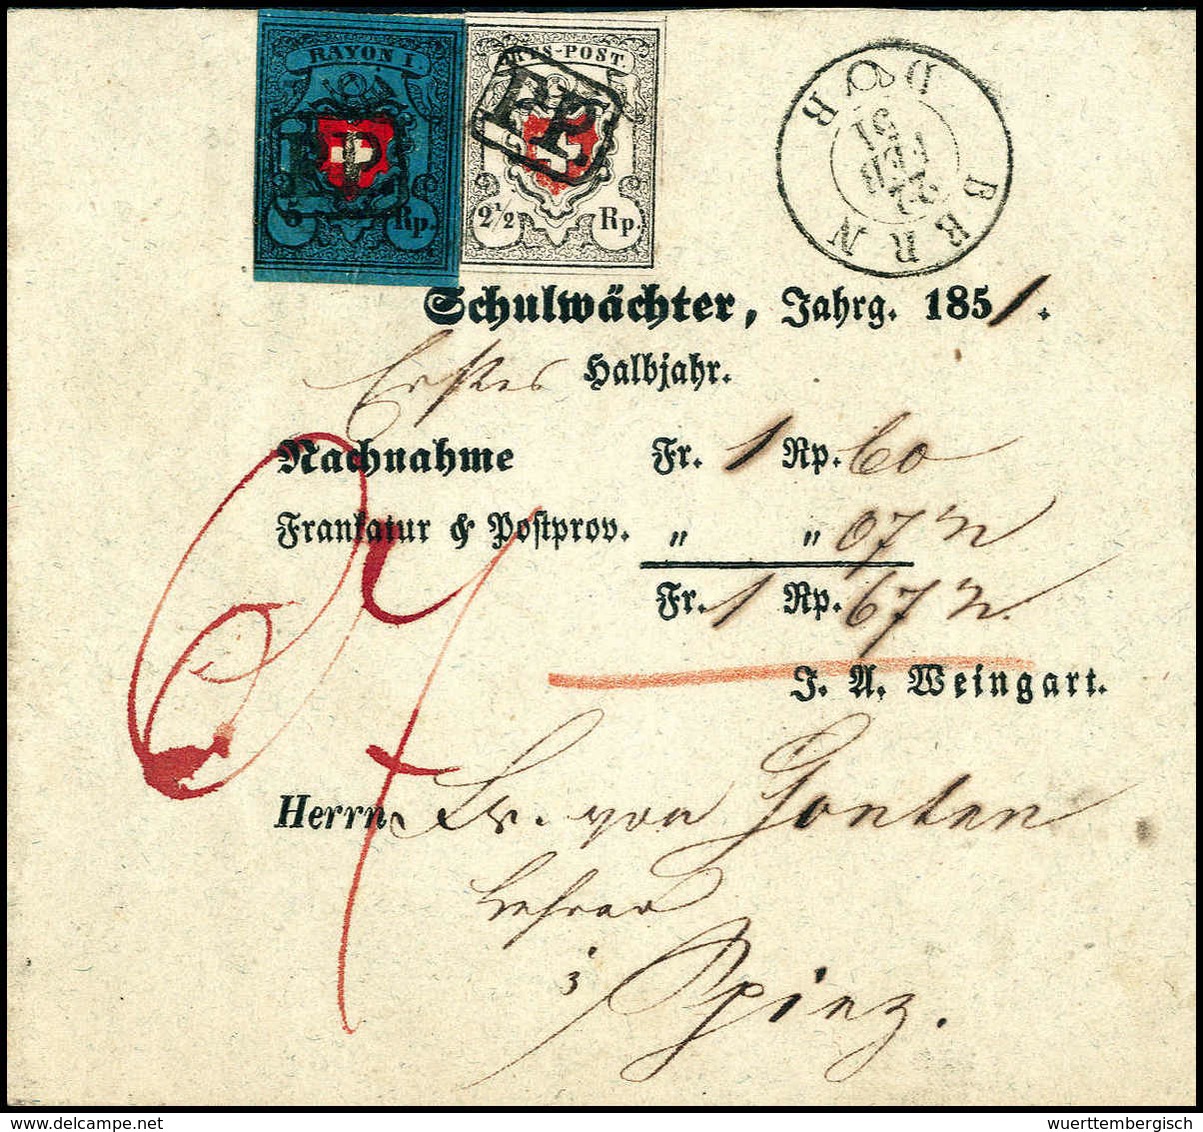 RAYON I
P.P.
5 Rp.
ORTS-POST
P.P.
2½ Rp.
BERN
22
FEB
51
Schulwächter, Jahrg. 1851.
Erstes Halbjahr.
Nachnahme Fr. 1 Rp. 60
Frankatur & Postprov. „ „ 07 ½
Fr. 1 Rp. 67 ½
J. A. Weingart.
Herrn Fr. von Gonten
Lehrer
Spiez.
wuerttembergisch